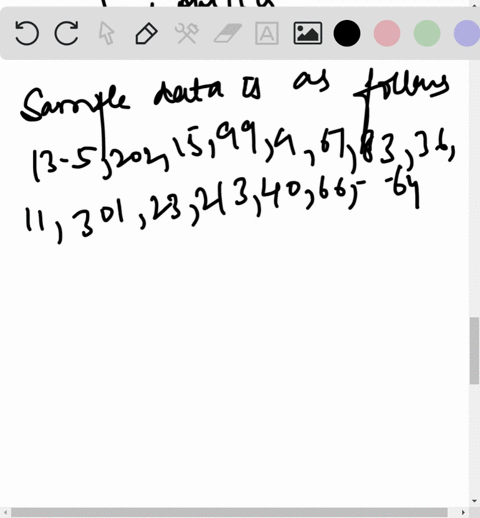 Sample data is as follows
13-5, 202, 15, 99, 9, 67, 83, 36,
11, 301, 23, 213, 40, 66, - -64